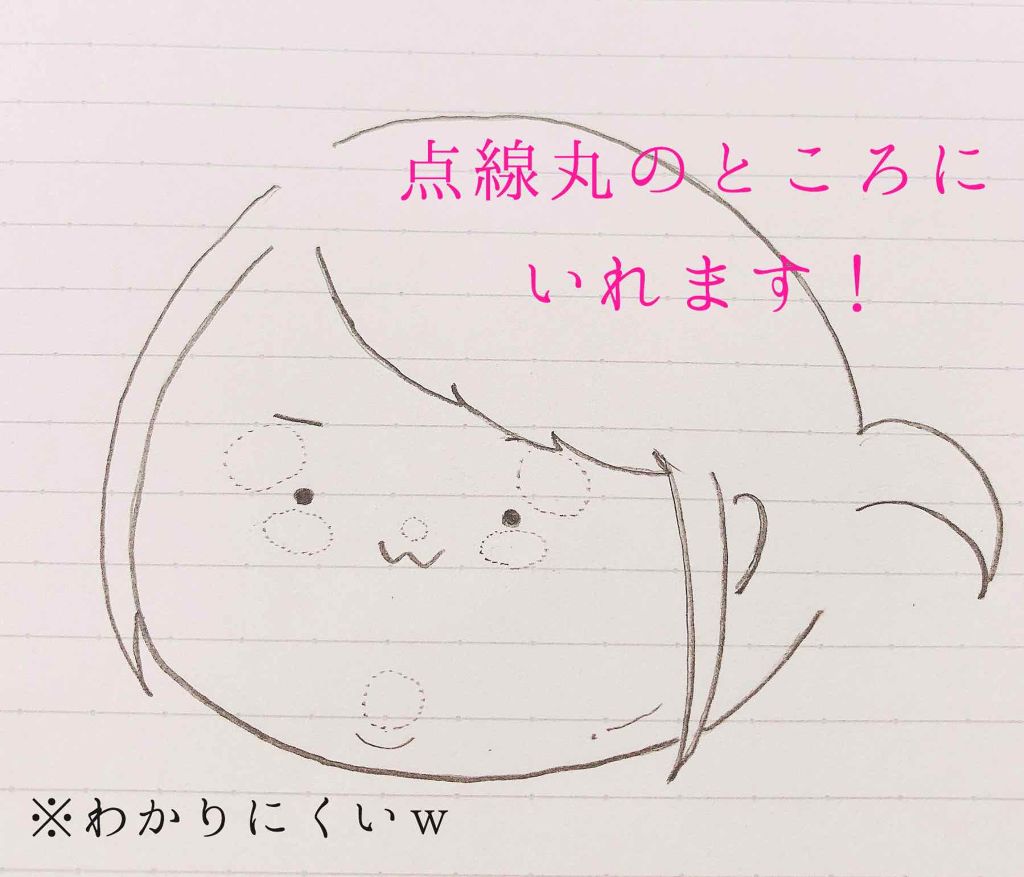 点線丸のところに
いれます！
※わかりにくいw